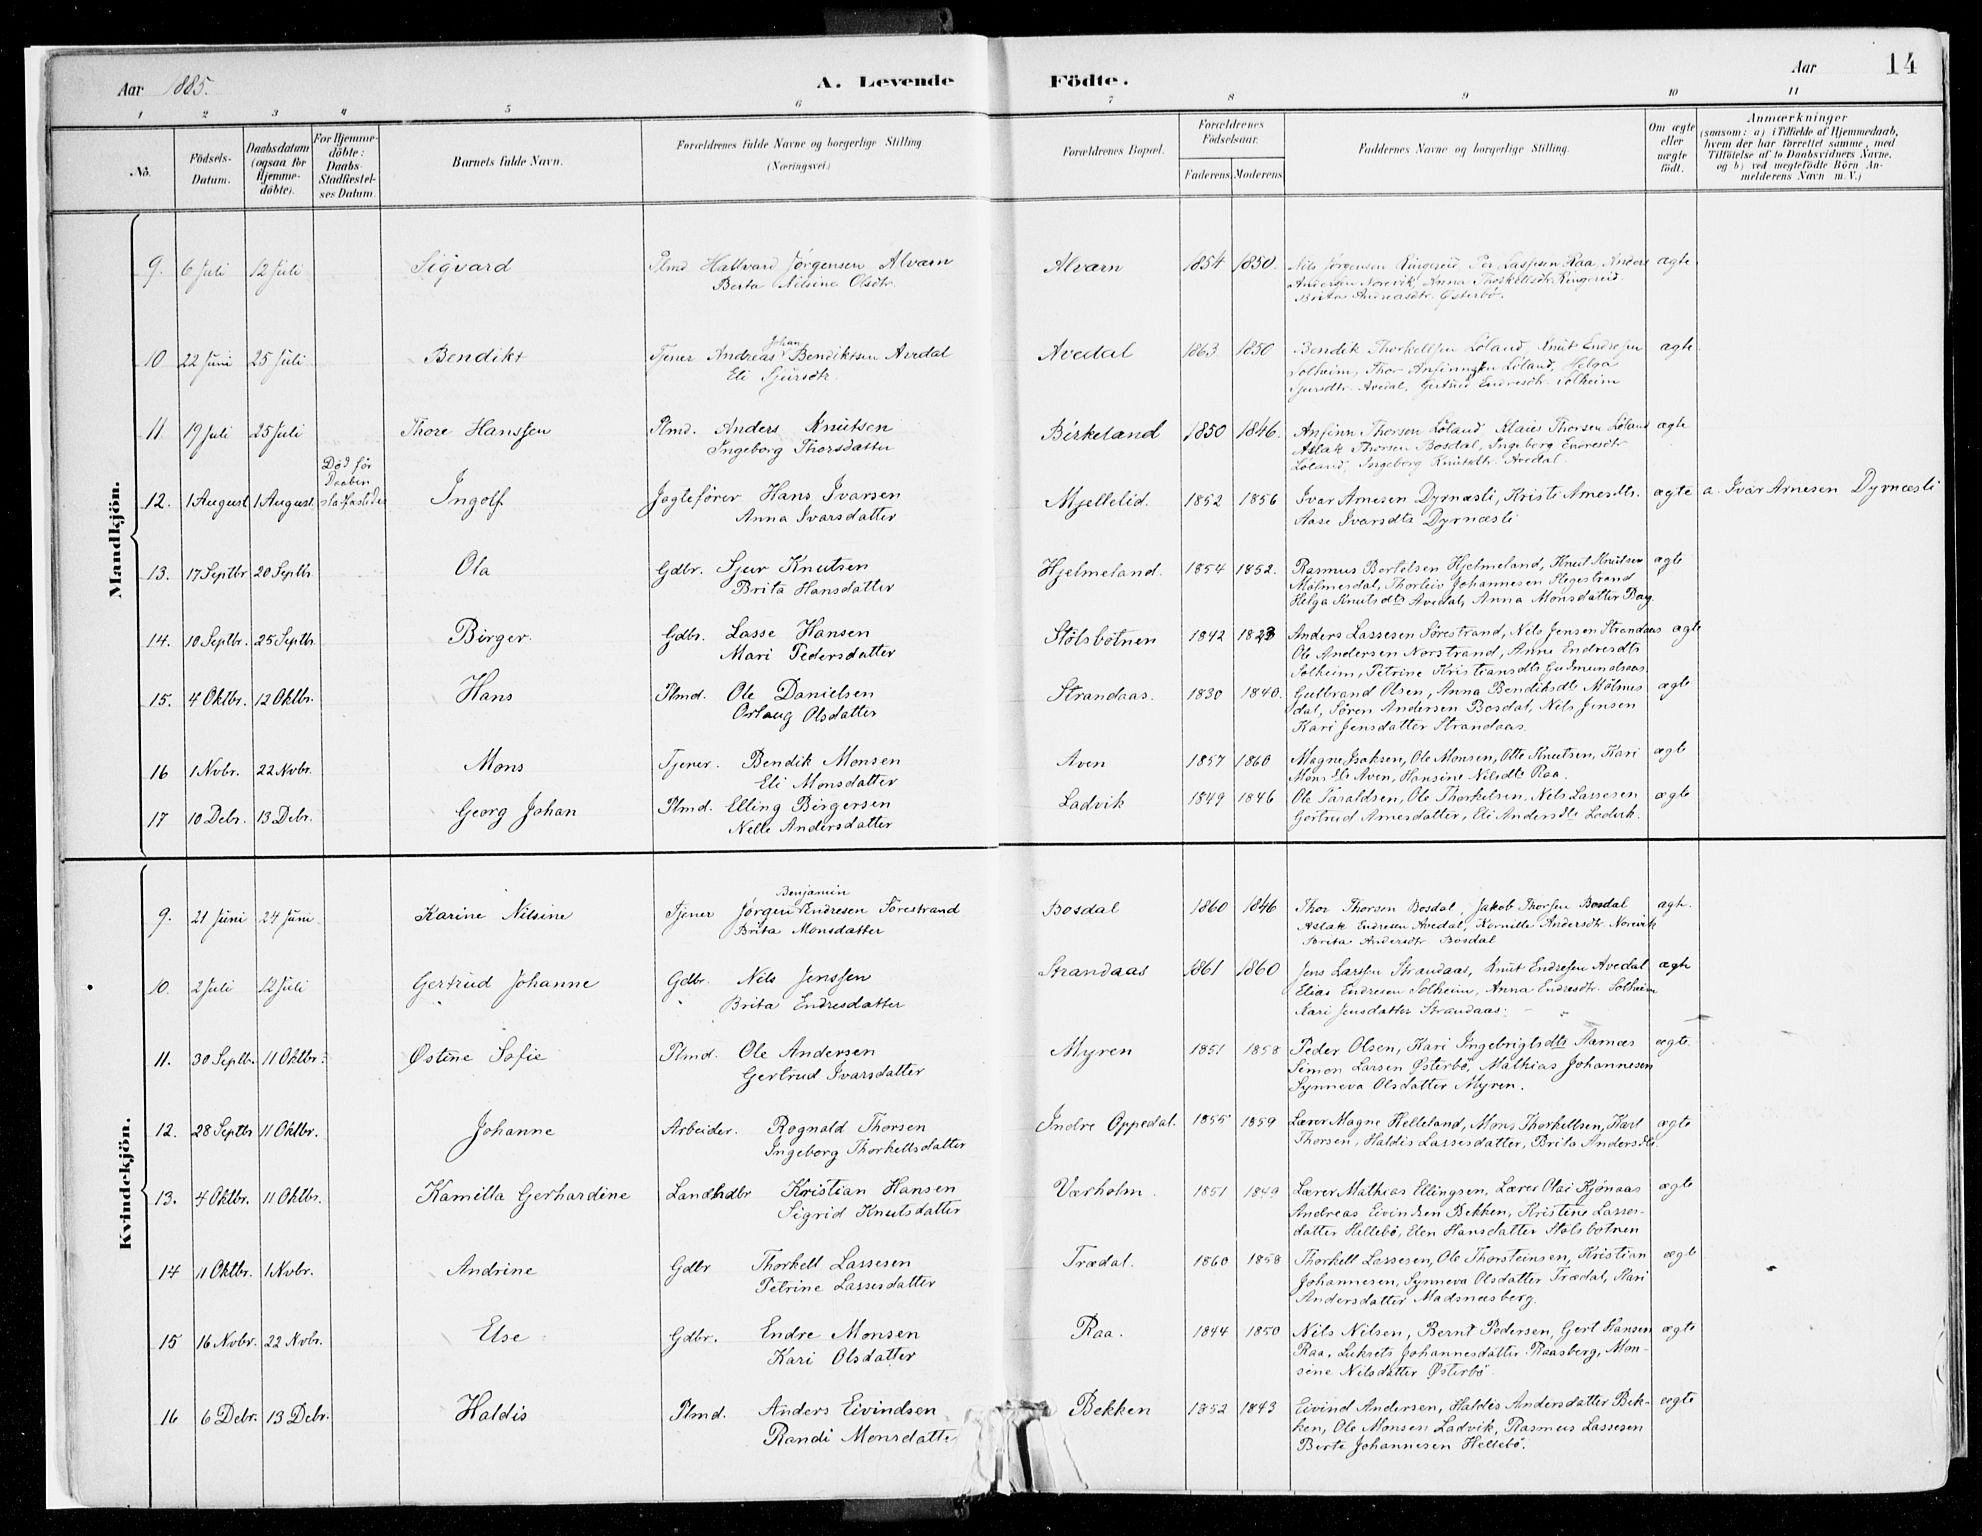 Aar 1885. A. Levende Födte. Aar 14
1 2 3 4 5 6 7 8 9 10 11
No. Födsels-Datum. Daabsdatum (ogsaa for Hjemme-döbte). For Hjemme-döbte: Daabs-Stadfæstel-ses Datum. Barnets fulde Navn. Forældrenes fulde Navne og borgerlige Stilling. (Næringsvei.) Forældrenes Bopæl. Forældrenes Födselsaar. Faderens Moderens Faddernes Navne og borgerlige Stilling. Om ægte eller uægte födt. Anmærkninger (saasom: a) i Tilfælde af Hjemmedaab, hvem der har forrettet samme, med Tilföielse af to Daabsvidners Navne, og b) ved uægtefödte Börn An-melderens Navn m. V.)
Mandkjön.
9. 6 Juli 12 Juli Sigvard Plmd Hallvard Jørgensen Alværn Alværn 1854 1850. Nils Jørgensen Ringereid, Per Lassesen Raa, Anders ægte
Berta Nilsine Olsdtr. Andersen Norevik, Anna Thorkelsdtr Ringereid
Brita Andreasdtr. Østerbø.
10 22 Juni 25 Juli Bendikt Tjener Andreas Johan Bendiktsen Avedal Avedal 1863 1850 Bendik Thorkellsen Løland, Knut Endresen ægte
Eli Sjursdtr. Solheim, Thor Anfinnsen Løland, Helga
Sjursdtr. Avedal, Gertrud Endresdtr. Solheim
11 19 Juli 25 Juli Thore Hanssen Plmd. Anders Knutsen Birkeland 1850 1846. Anfinn Thorsen Løland Klaus Thorsen Løland ægte
Ingeborg Thorsdatter Aslak Thorsen Bosdal, Ingeborg Endresdtr
Løland, Ingeborg Knutsdtr. Avedal.
Død før Daaben stadfæstedes
12. 1 August 1 August. Ingolf Jagtefører Hans Ivarsen Mjellelid. 1852 1856 Ivar Arnesen Dyrnæsli, Kristi Arnesdtr. ægte a. Ivar Arnesen Dyrnæsli
Anna Ivarsdatter Aase Ivarsdtr Dyrnæsli
13. 17 Septbr 20 Septbr. Ola Gdbr. Sjur Knutsen Hjelmeland. 1854 1852. Rasmus Bertelsen Hjelmeland, Knut Knutsen ægte
Brita Hansdatter Mølmesdal, Thorleiv Johannesen Slegestrand
Helga Knutsdtr Avedal, Anna Monsdatter Bag
14. 10 Septbr. 25 Septbr. Birger. Gdbr. Lasse Hansen Stølsbotnen 1842 1823 Anders Lassesen Sørestrand, Nils Jensen Strandaas ægte
Mari Pedersdatter Ole Andersen Norstrand, Anne Endresdtr
Solheim, Petrine Kristiansdtr Gudmundsaas
15. 4 Oktbr. 12 Oktbr. Hans Plmd. Ole Danielsen Strandaas. 1830 1840. Gulbrand Olsen, Anna Bendiksdtr Mølmes ægte
Orlaug Olsdatter dal, Søren Andersen Bosdal, Nils Jensen
Kari Jensdatter Strandaas.
16 1 Nvbr. 22 Nvbr. Mons Tjener. Bendik Monsen Aven 1857 1860 Magne Isaksen, Ole Monsen, Otte Knutsen, Kari ægte
Eli Monsdatter Monsdtr Aven, Hansine Nilsdtr Raa.
17 10 Debr. 13 Debr. Georg Johan Plmd. Elling Birgersen Ladvik 1849 1846 Ole Taraldsen, Ole Thorkelsen, Nils Lassesen ægte
Nelle Andersdatter Gertrud Arnesdatter, Eli Andersdtr Ladvik.
Kvindekjön.
9. 21 Juni 24 Juni Karine Nilsine Tjener Jørgen Benjamin Endresen Sørestrand Bosdal 1860 1846 Thor Thorsen Bosdal, Jakob Thorsen Bosdal ægte.
Brita Monsdatter Aslak Endresen Avedal, Kornille Andersdtr. Norevik
Brita Andersdtr. Bosdal
10. 2 Juli 12 Juli Gertrud Johanne Gdbr. Nils Jenssen Strandaas 1861 1860 Jens Larssen Strandaas, Knut Endresen Avedal ægte
Brita Endresdatter Elias Endresen Solheim, Anna Endresdtr. Solheim
Kari Jensdatter Strandaas.
11. 30 Septbr. 11 Oktbr. Østine Sofie Plmd. Ole Andersen Myren 1851 1858 Peder Olsen, Kari Ingebrigtsdtr Aamæs ægte
Gertrud Ivarsdatter Simon Larsen Østerbø, Mathias Johannesen
Synneva Olsdatter Myren.
12. 28 Septbr 11 Oktbr. Johanne Arbeider. Rognald Thorsen Indre Oppedal. 1855 1859 Lærer Magne Helleland, Mons Thorkellsen, Karl ægte
Ingeborg Thorkellsdatter Thorsen, Haldis Lassesdatter, Brita Andersdtr
13. 4 Oktbr. 11 Oktbr. Kamilla Gerhardine Landhdbr Kristian Hansen Værholm. 1851 1849 Lærer Mathias Ellingsen, Lærer Olai Kjønaas ægte
Sigrid Knutsdatter Andreas Eivindsen Bekken, Kristine Lasses-
datter Hellebø, Elen Hansdatter Stølsbotnen
14 11 Oktbr. 1 Nvbr. Andrine Gdbr Thorkell Lassesen Trædal. 1860 1858 Thorkell Lassesen, Ole Thorsteinsen, Kristian ægte
Petrine Lassesdatter Johannesen, Synneva Olsdatter Trædal, Kari
Andersdatter Madsnæsberg.
15 16 Nvbr. 22 Nvbr. Else Gdbr. Endre Monsen Raa. 1844 1850 Nils Nilsen, Bernt Pedersen, Gert Hansen ægte
Kari Olsdatter Raa, Luksets Johannesdatter Raasberg, Mon-
sine Nilsdatter Østerbø
16 6 Debr. 13 Debr. Haldis Plmd. Anders Eivindsen Bekken 1852 1843 Eivind Andersen, Haldis Andersdatter Bek- ægte
Randi Monsdatter ken, Ole Monsen Ladvik, Rasmus Lassesen
Berte Johannesen Hellebø.